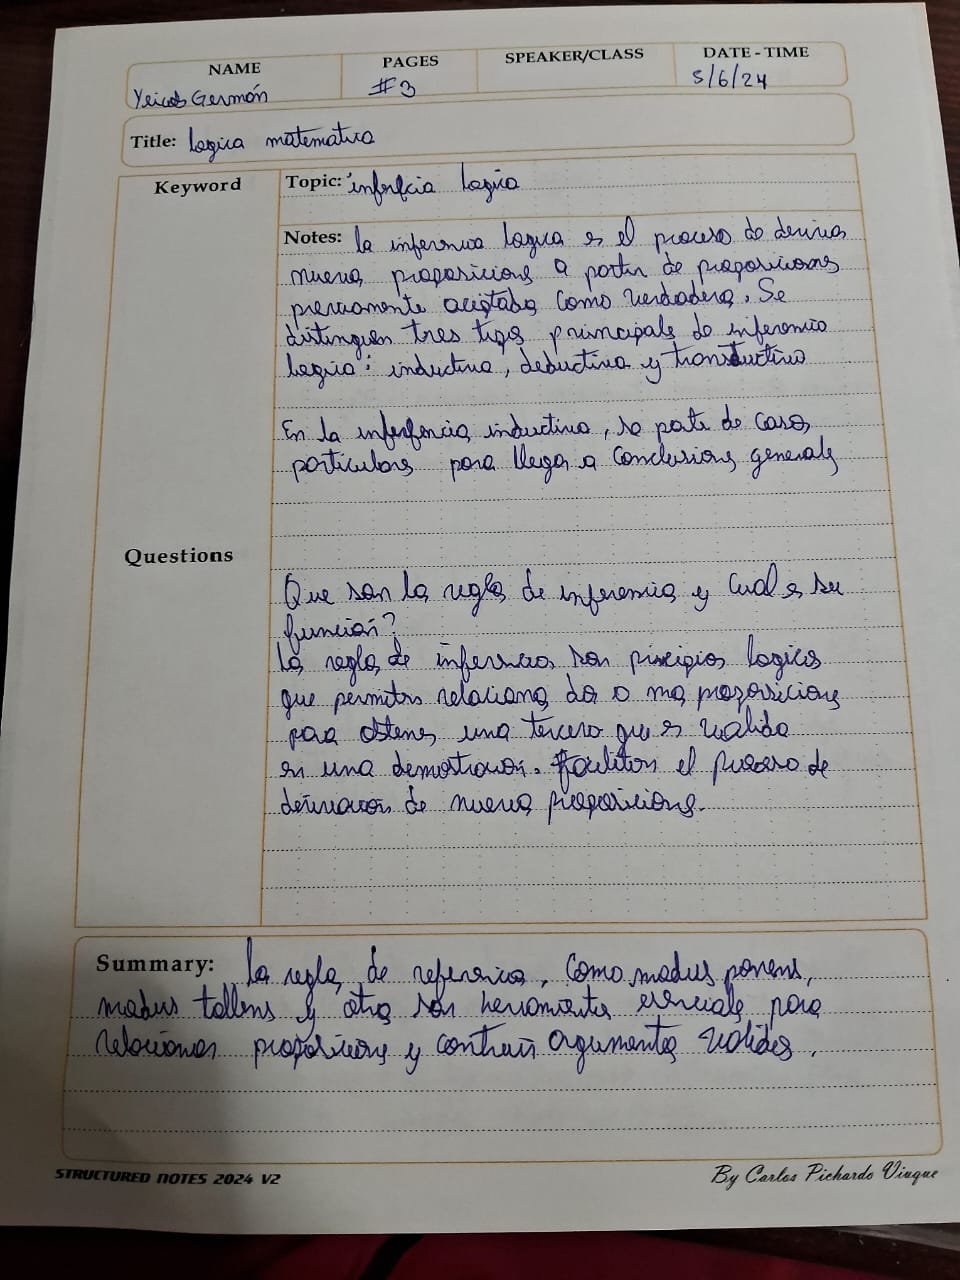 NAME
PAGES
SPEAKER/CLASS
DATE - TIME
Germón
#3
5/6/24
Title: Logica matematica
Keyword
Topic: inferecia Logica
Notes: la inferencia Logica es el proceso de derivar
nuevas proposicions a partir de proposicions
previamente aceptadas como verdaderas. Se
distinguen tres tipos principals de inferencia
Logica: inductiva, deductiva y transductiva
En la inferencia inductiva, se parte de casos
particulars para llegar a conclusions generals
Questions
Que son las reglas de inferencia y cual es su
función?
Las reglas de inferencias son principios logicos
que permiten relacionar dos o mas proposicions
para obtener una tercera que es valida
en una demostracion. Facilitan el proceso de
derivacion de nuevas proposicions.
Summary: La reglas de referencia, como modus ponens,
modus tollens y otras son herramientas esenciales para
relacionar proposicions y contruir argumentos validos.
STRUCTURED NOTES 2024 V2
By Carlos Pichardo Viuque